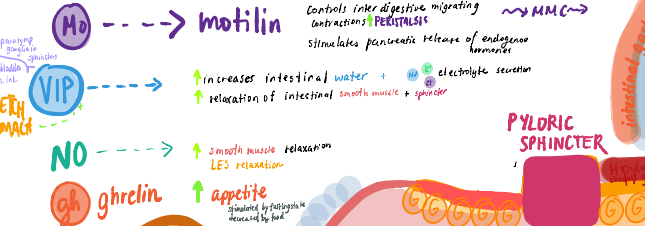 Mo
motilin
Controls interdigestive migrating
contractions ↑ PERISTALSIS
MMC
Stimulates pancreatic release of endogenous
hormones
parasymp
ganglia in
sphincters
VIP
↑ increases intestinal water + Na K+ Cl- electrolyte secretion
↑ relaxation of intestinal smooth muscle + sphincter
NO
↑ smooth muscle relaxation
LES relaxation
gh
ghrelin
↑ appetite
stimulated by fasting state
decreased by food
PYLORIC
SPHINCTER
G G G G G
intestinal